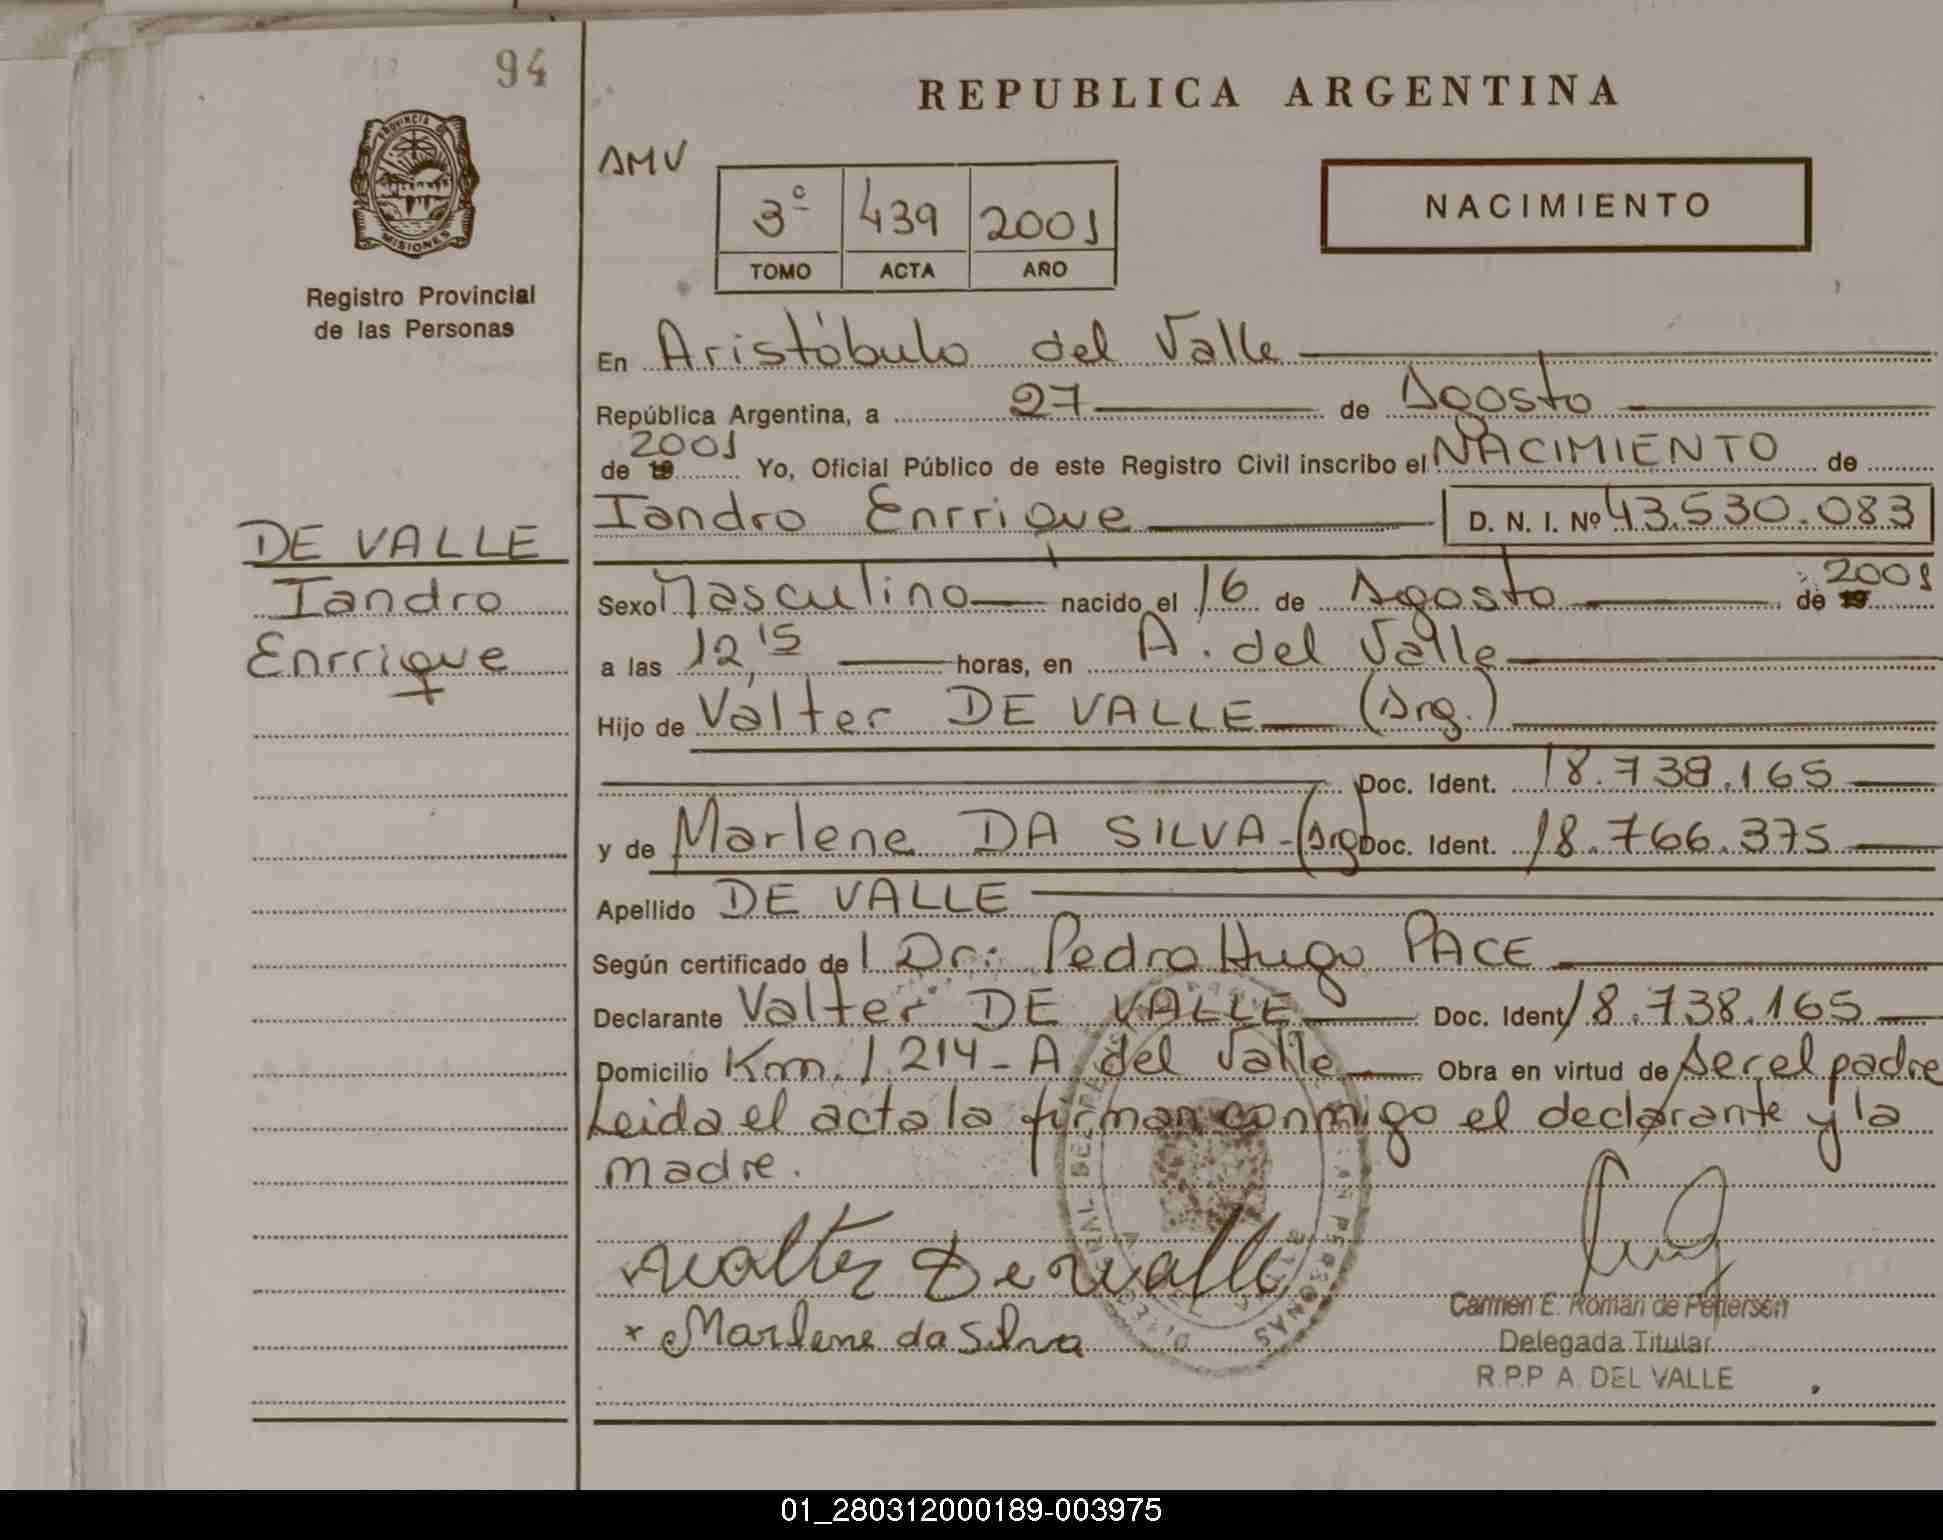 94
REPUBLICA ARGENTINA
AMV
3º 439 2001
TOMO ACTA AÑO
NACIMIENTO
PROVINCIA DE
MISIONES
Registro Provincial
de las Personas
En Aristóbulo del Valle
República Argentina, a 27 de Agosto
de 19 2001 Yo, Oficial Público de este Registro Civil inscribo el NACIMIENTO de
Iandro Enrrique D. N. I. Nº 43.530.083
DE VALLE
Iandro
Enrrique
Sexo Masculino nacido el 16 de Agosto de 19 2001
a las 12,15 horas, en A. del Valle
Hijo de Valter DE VALLE (Arg.)
Doc. Ident. 18.738.165
y de Marlene DA SILVA - (Arg) Doc. Ident. 18.766.375
Apellido DE VALLE
Según certificado de l Dr: Pedro Hugo PACE
Declarante Valter DE VALLE Doc. Ident 18.738.165
Domicilio Km. 1.214 - A del Valle Obra en virtud de ser el padre
Leida el acta la firman conmigo el declarante y la
madre.
Walter De valle
x Marlene da Silva
Carmen E. Roman de Petterson
Delegada Titular
R.P.P A. DEL VALLE
01_280312000189-003975